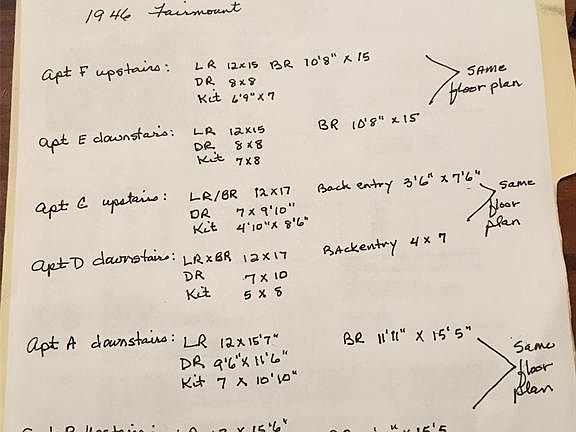 1946 Fairmount
Apt F upstairs: LR 12x15 BR 10'8" x 15
DR 8x8
Kit 6'9" x 7
SAME
floor plan
Apt E downstairs: LR 12x15 BR 10'8" x 15
DR 8x8
Kit 7x8
Apt C upstairs: LR/BR 12x17 Back entry 3'6" x 7'6"
DR 7 x 9'10"
Kit 4'10" x 8'6"
Same
floor
plan
Apt D downstairs: LR x BR 12x17 BAckentry 4x7
DR 7 x 10
Kit 5 x 8
Apt A downstairs: LR 12x15'7" BR 11'11" x 15'5"
DR 9'6" x 11'6"
Kit 7 x 10'10"
Same
floor
plan